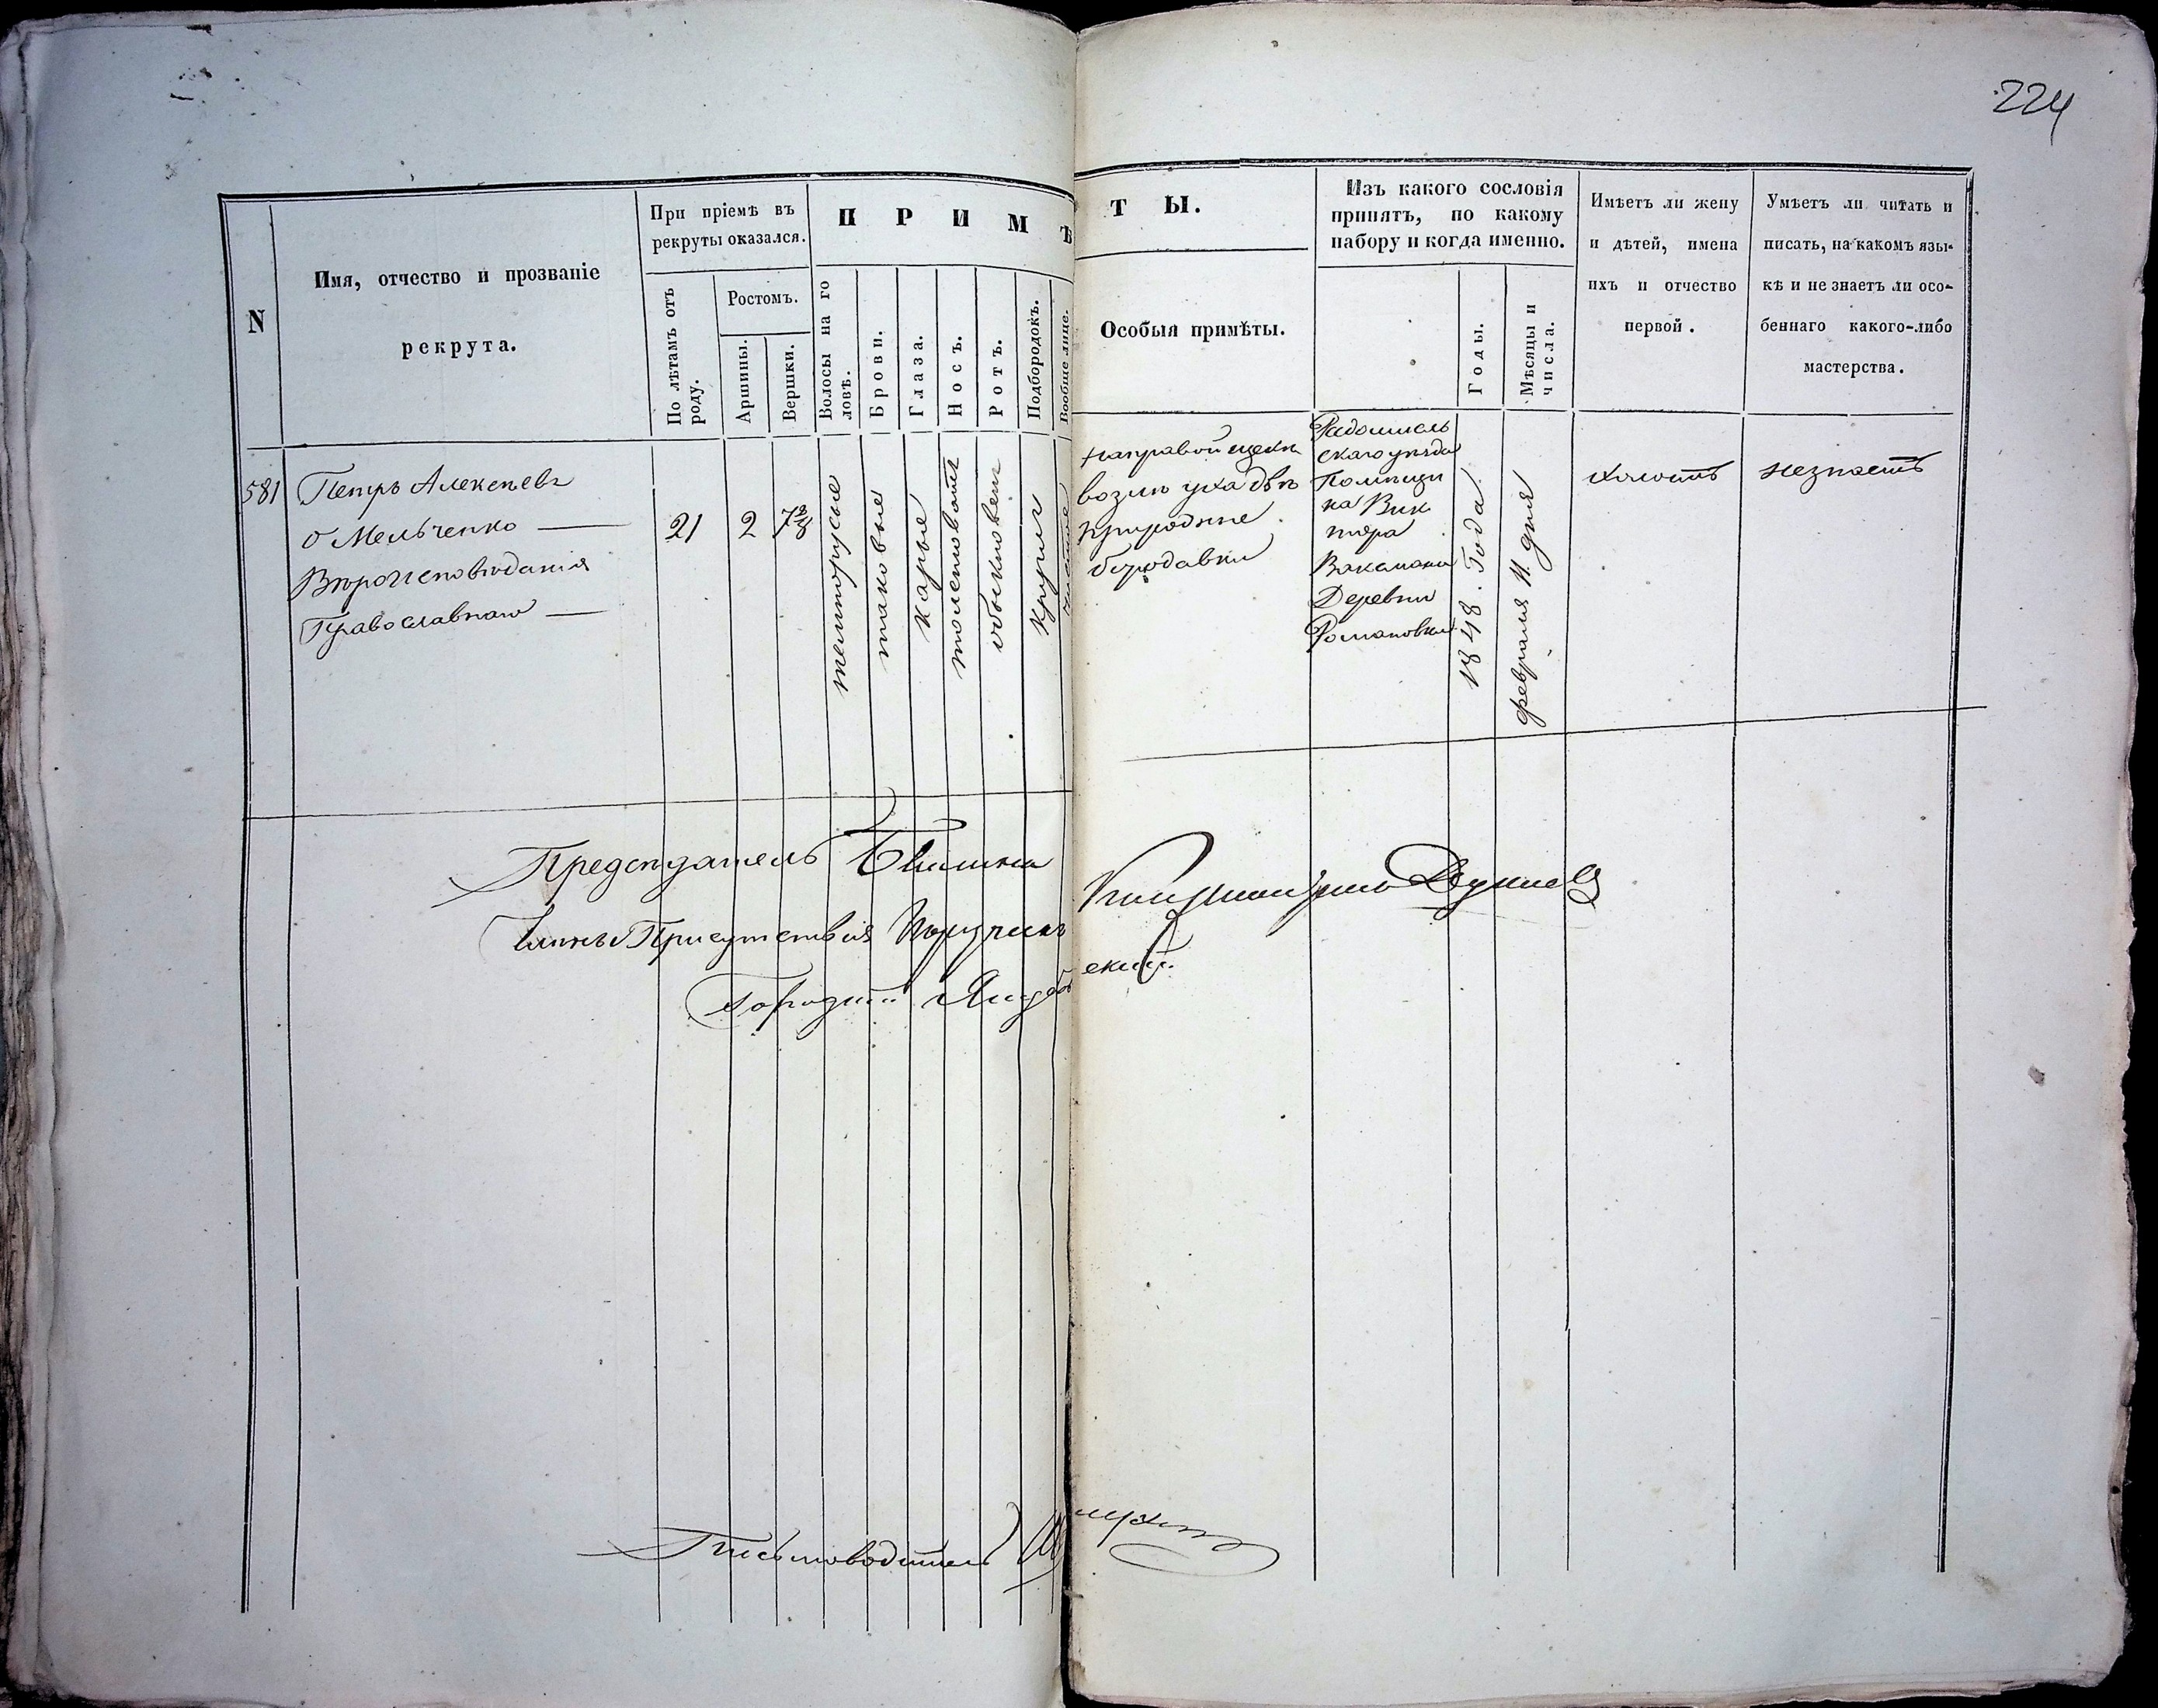 224
N
Имя, отчество и прозваніе
рекрута.
При пріемѣ въ
рекруты оказался.
По лѣтамъ отъ
роду.
Ростомъ.
Аршины.
Вершки.
П Р И М Ѣ
Т Ы.
Волосы на го
ловѣ.
Брови.
Глаза.
Носъ.
Ротъ.
Подбородокъ.
Вообще лице.
Особыя примѣты.
Изъ какого сословія
принятъ, по какому
набору и когда именно.
Годы.
Мѣсяцы и
числа.
Имѣетъ ли жену
и дѣтей, имена
ихъ и отчество
первой.
Умѣетъ ли читать и
писать, на какомъ язы-
кѣ и не знаетъ ли осо-
беннаго какого-либо
мастерства.
581
Петръ Алексѣевъ
Омельченко
Вѣроисповѣданія
Православнаго
21
2
7 3/8
темнорусые
таковые
карые
обыкновен
Кругл
чистое
на правой щекѣ
возлѣ уха двѣ
природные
бородавки
Радомысль
скаго уѣзда
Помѣщи
ка Вик
тора
Деревни
Романовки
1848 Года
февраля 11 дня
холостъ
незнаетъ
Предсѣдатель
Члены Присутствія
скій
Письмоводитель